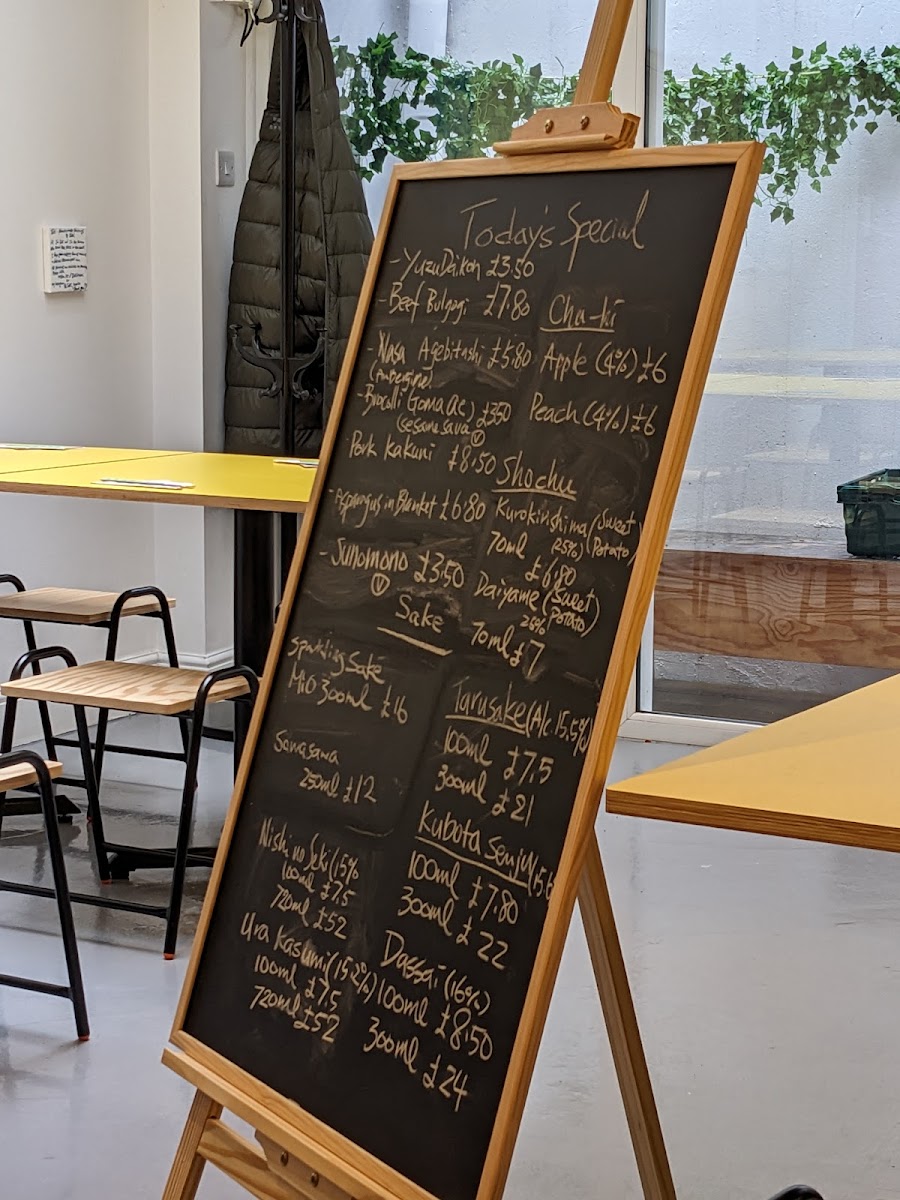 Today's Special
- Yuzu Daikon £3.50
- Beef Bulgogi £7.80
- Nasu Agebitashi £5.80
(Aubergine)
- Brocolli Goma ae) £350
(sesame sauce) V
Pork Kakuni £8.50
- Aspargus in Blanket £6.80
- Sunomono £3.50
V
Cha-hi
Apple (4%) £6
Peach (4%) £6
Shochu
Kurokirishima (Sweet
70ml (25%) (Potato)
£6.80
Daiyame (Sweet
25% Potato)
70ml £7
Sake
Sparkling Sake
MiO 300ml £16
Samasawa
250ml £12
Nishi no Seki (15%
100ml £7.5
720ml £52
Ura Kasumi (15.2%)
100ml £7.5
720ml £52
Tarusake (Alc 15.5%)
100ml £7.5
300ml £21
Kubota Senjyu (15.6
100ml £7.80
300ml £22
Dassai (16%)
100ml £8.50
300ml £24